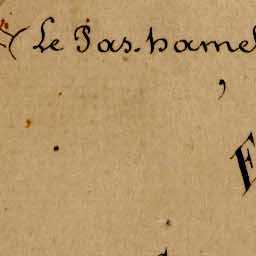 Le Pas-hamel
E